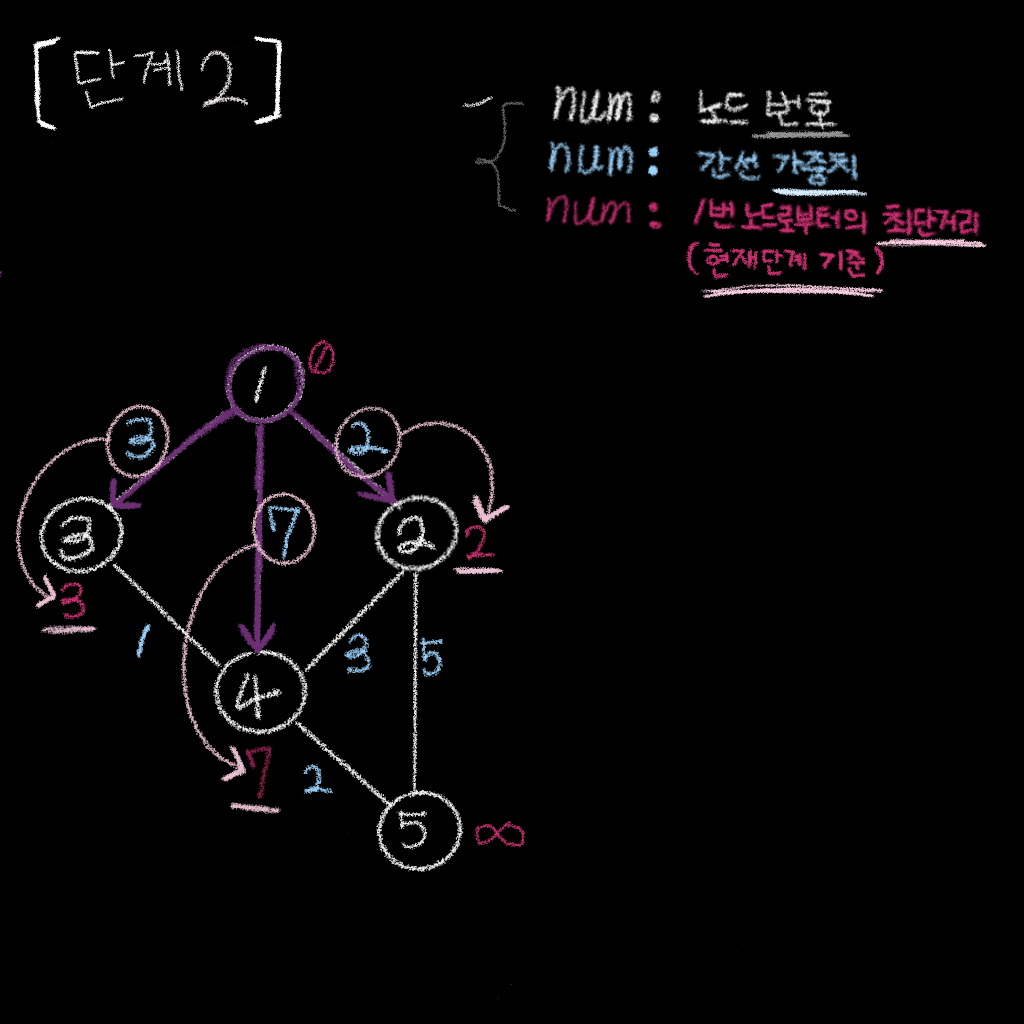 [단계 2]
num : 노드 번호
num : 간선 가중치
num : 1번 노드로부터의 최단거리
(현재단계 기준)
1 0
3 2
7
3 2
2
3
1 3 5
4
7 2
5 ∞